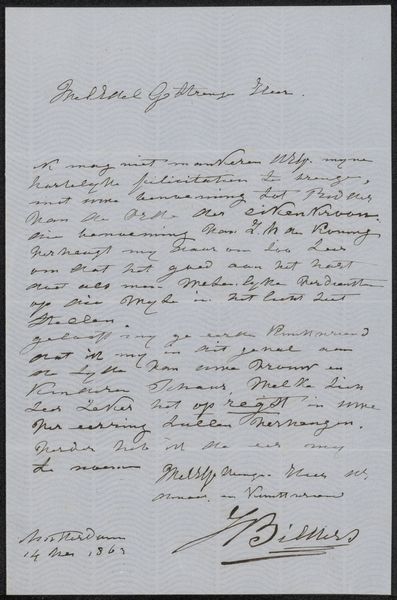 WelEdel Gestrenge Heer.
Ik mag niet mankeren UEG. myne
hartelyke felicitatien te brenge,
met uwe benoeming tot Ridder
van de Orde der Eikenkroon.
die benoeming van Z. M. de Koning
verheugt my daar om zoo zeer
om dat het goed aan het hart
doet als men Wezenlyke verdienste
op die Wyze in het licht ziet
stellen.
geloof my ge eerde Kunstvriend
dat ik my in dit geval aan
de zyde van uwe vrouw en
kinderen schaar Welke zich
zeer zeker het op regst in uwe
ver eerring zullen verheugen.
Verder heb ik de eer my
te noemen WelEdGestrenge Heer
en Kunstvriend
Amsterdam
14 1863
JBilders